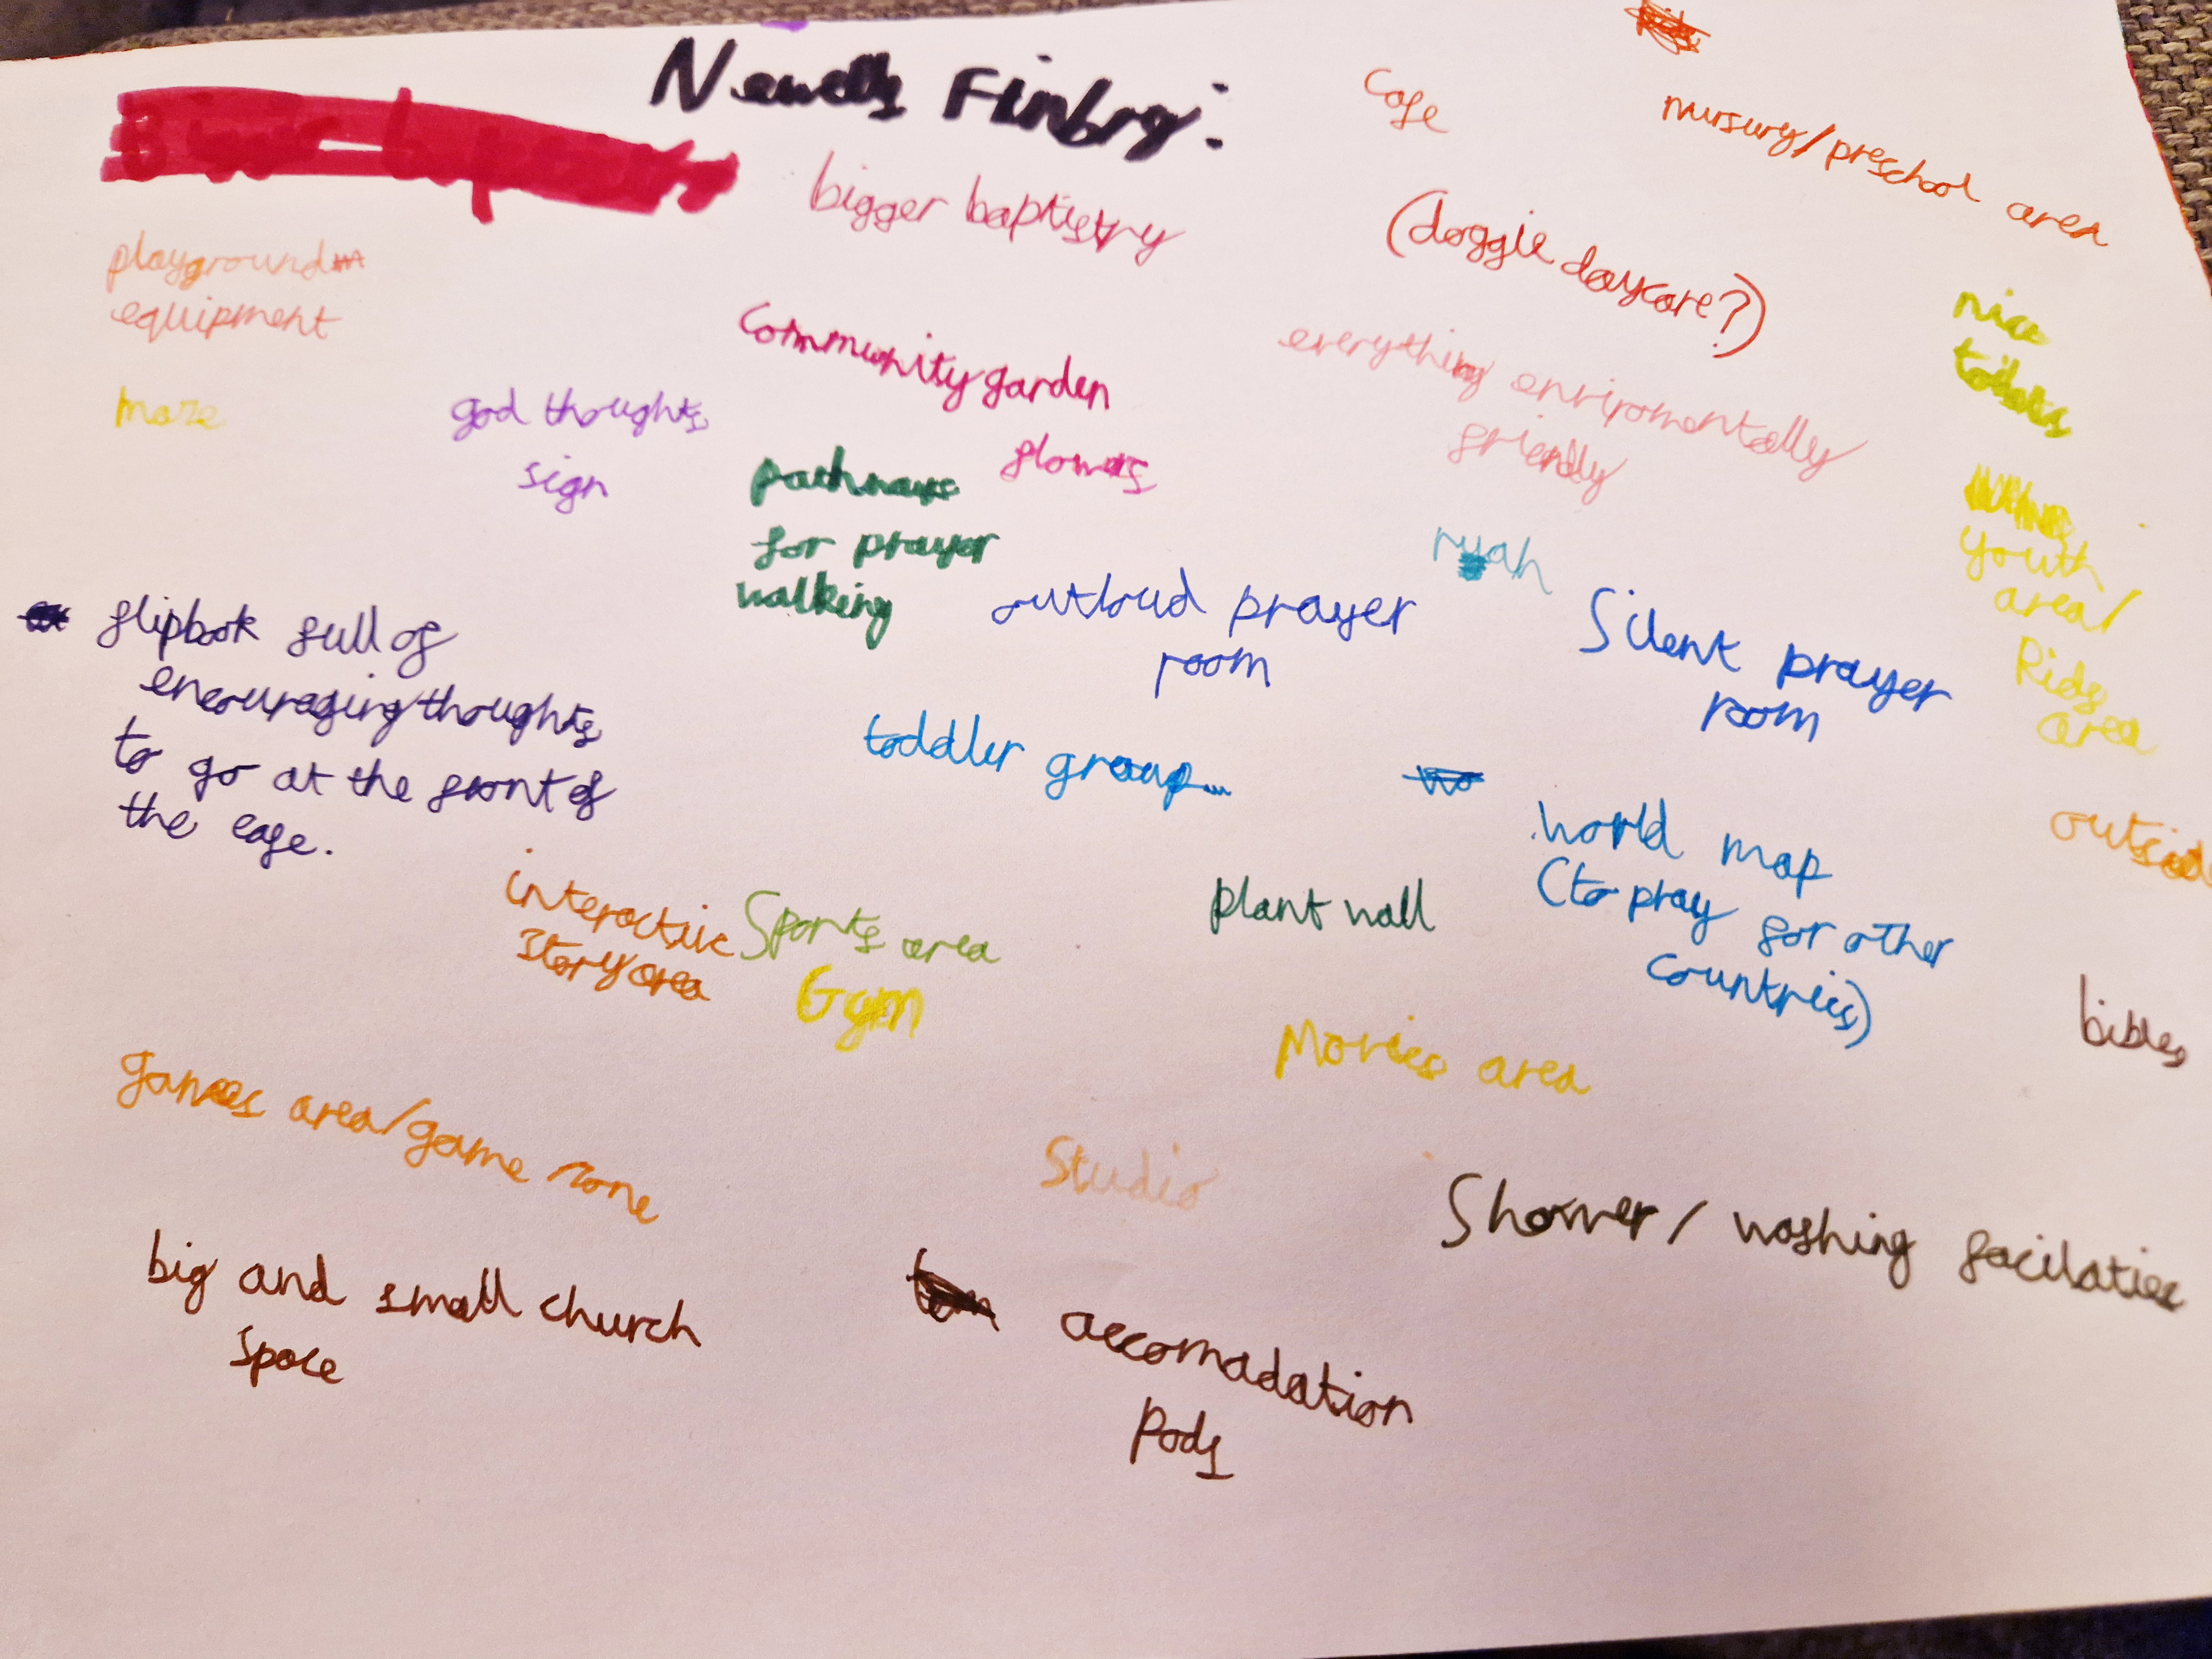 bigger baptistry
cafe
nursury/preschool area
(doggie daycare?)
playground
equipment
community garden
flowers
everything enviromentally
friendly
nice
toilets
maze
god thoughts
sign
pathways
for prayer
walking
ruah
youth/
area/
area
outloud prayer
room
Silent prayer
room
flipbook full of
encouraging thoughts
to go at the front of
the cafe.
toddler group...
world map
(to pray for other
countries)
interactive
story area
Sports area
Gym
plant wall
bibles
Movies area
games area/game zone
Studio
Shower/washing facilaties
big and small church
space
accomadation
Pods